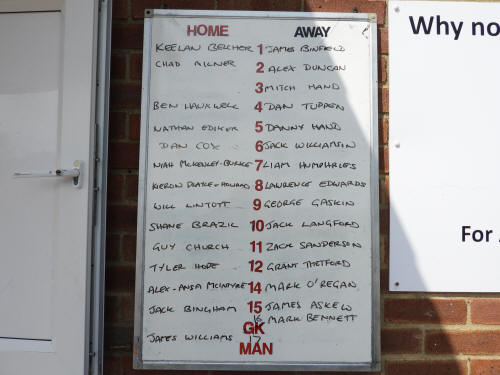 HOME AWAY
KEELAN BELCHER 1 JAMES BINFIELD
CHAD MILNER 2 ALEX DUNCAN
3 MITCH HAND
BEN HAWKWELL 4 DAN TUPPEN
NATHAN EDIKER 5 DANNY HAND
DAN COX 6 JACK WILLIAMSON
7 LIAM HUMPHRIES
8 LAURENCE EDWARDS
WILL LINTOTT 9 GEORGE GASKIN
SHANE BRAZIL 10 JACK LANGFORD
GUY CHURCH 11 ZACK SANDERSON
TYLER HOPE 12 GRANT THETFORD
ALEX-ANSA MCINTYRE 14 MARK O'REGAN
JACK BINGHAM 15 JAMES ASKEW
GK 16 MARK BENNETT
JAMES WILLIAMS 17
MAN
Why no
For